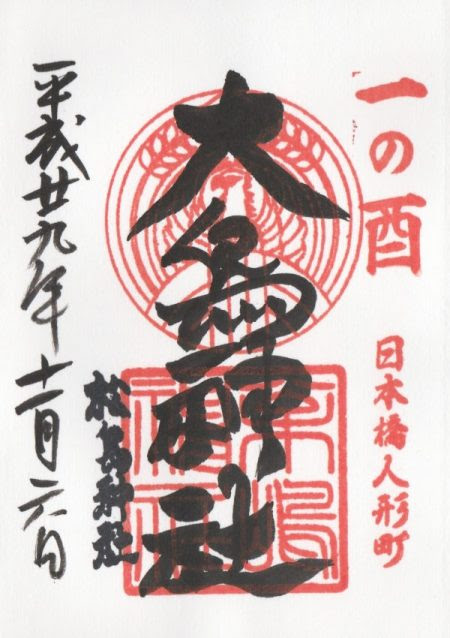 一の酉
日本橋人形町
大鳥神社
松島神社
平成廿九年十一月六日